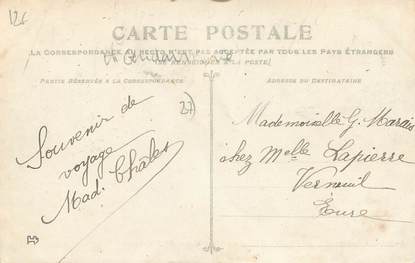 12€
CARTE POSTALE
LA CORRESPONDANCE AU RECTO N'EST PAS ACCEPTÉE PAR TOUS LES PAYS ÉTRANGERS
(SE RENSEIGNER A LA POSTE)
PARTIE RÉSERVÉE A LA CORRESPONDANCE
ADRESSE DU DESTINATAIRE
27)
Souvenir de
voyage
Mad. Châles
Mademoiselle G. Marais
chez Melle Lapierre
Verneuil
Eure